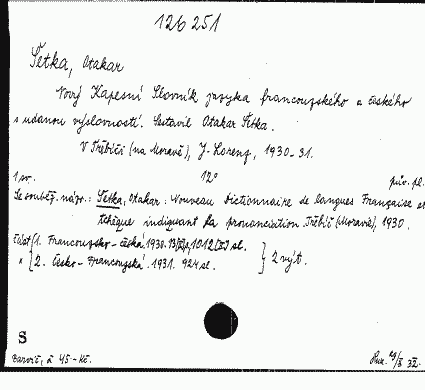 126251
Šetka, Otakar
Nový Kapesní Slovník jazyka francouzského a českého
s udanou výslovností. Sestavil Otakar Šetka.
V Třebíči (na Moravě), J. Lorenz, 1930-31.
1 sv. 12° pův. pl.
Se souběž. názv.: Šetka, Otakar: Nouveau dictionnaire de langues Française et
tchèque indiquant la prononciation Třebíč (Moravie), 1930.
část 1. Francouzsko-česká 1930. 1012 sl.
" 2. Česko-Francouzská. 1931. 924 sl. } 2 výt.
S
à 45-Kč.